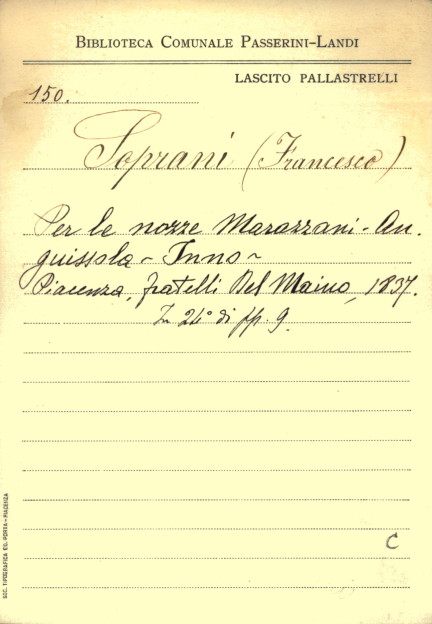 BIBLIOTECA COMUNALE PASSERINI-LANDI
LASCITO PALLASTRELLI
150.
Soprani (Francesco)
Per le nozze Marazzani-An.
guissola - Inno -
Piacenza, fratelli Del Maino, 1837.
In 24° di pp. 9.
C
SOC. TIPOGRAFICA ED. PORTA - PIACENZA